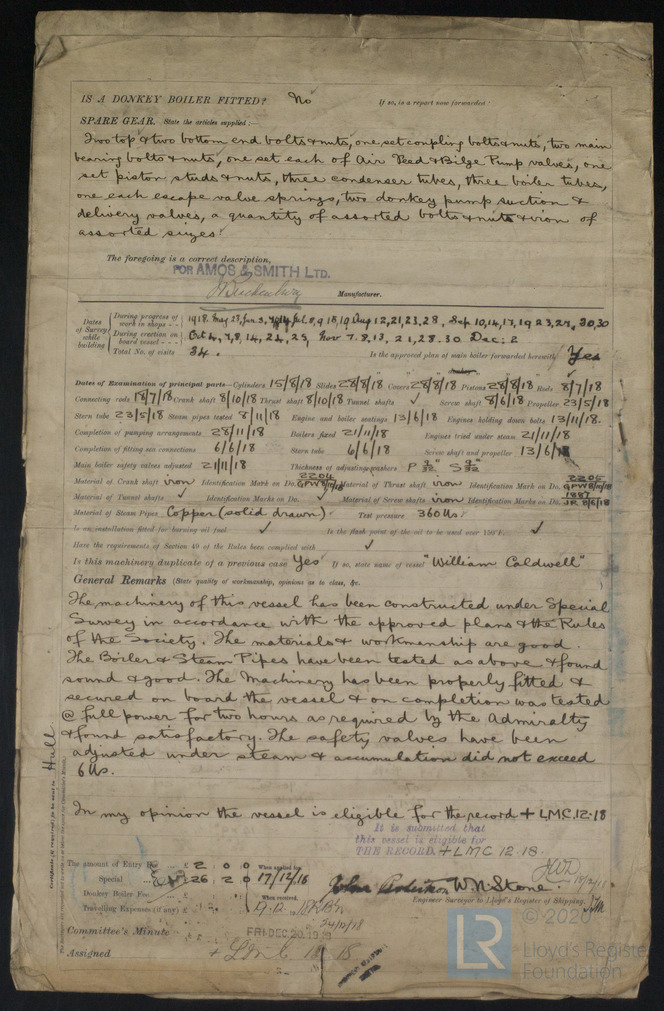 IS A DONKEY BOILER FITTED? No If so, is a report now forwarded?
SPARE GEAR. State the articles supplied:—
Two top & two bottom end bolts & nuts, one set coupling bolts & nuts, two main
bearing bolts & nuts, one set each of Air Feed & Bilge Pump valves, one
set piston studs & nuts, three condenser tubes, three boiler tubes,
one each escape valve springs, two donkey pump suction &
delivery valves, a quantity of assorted bolts & nuts & iron of
assorted sizes.
The foregoing is a correct description,
FOR AMOS & SMITH LTD.
Manufacturer.
Dates of Survey while building
During progress of work in shops - - 1918. May 23, Jun. 3, Jul. 8, 9, 18, 19 Aug 12, 21, 23, 28, Sep 10, 14, 17, 19 23, 27, 30, 30
During erection on board vessel - - - Oct 4, 7, 8, 14, 22, 25, Nov 7. 8. 13, 21, 28. 30 Dec: 2
Total No. of visits 34. Is the approved plan of main boiler forwarded herewith Yes
Dates of Examination of principal parts—Cylinders 15/8/18 Slides 28/8/18 Covers 28/8/18 Pistons 28/8/18 Rods 8/7/18
Connecting rods 18/7/18 Crank shaft 8/10/18 Thrust shaft 8/10/18 Tunnel shafts ✓ Screw shaft 8/6/18 Propeller 23/5/18
Stern tube 23/5/18 Steam pipes tested 8/11/18 Engine and boiler seatings 13/6/18 Engines holding down bolts 13/11/18.
Completion of pumping arrangements 28/11/18 Boilers fixed 21/11/18 Engines tried under steam 21/11/18
Completion of fitting sea connections 6/6/18 Stern tube 6/6/18 Screw shaft and propeller 13/6/18
Main boiler safety valves adjusted 21/11/18 Thickness of adjusting washers P S
Material of Crank shaft iron Identification Mark on Do. 2204 Material of Thrust shaft iron Identification Mark on Do. 2205 GPW 8/10/18
Material of Tunnel shafts ✓ Identification Marks on Do. ✓ Material of Screw shafts iron Identification Marks on Do. 1887 JR 8/6/18
Material of Steam Pipes Copper (solid drawn). Test pressure 360 lbs.
Is an installation fitted for burning oil fuel ✓ Is the flash point of the oil to be used over 150°F. ✓
Have the requirements of Section 49 of the Rules been complied with ✓
Is this machinery duplicate of a previous case Yes If so, state name of vessel "William Caldwell"
General Remarks (State quality of workmanship, opinions as to class, &c.
The machinery of this vessel has been constructed under Special
Survey in accordance with the approved plans & the Rules
of the Society. The materials & workmanship are good.
The Boiler & Steam Pipes have been tested as above & found
sound & good. The Machinery has been properly fitted &
secured on board the vessel & on completion was tested
@ full power for two hours as required by the Admiralty
& found satisfactory. The safety valves have been
adjusted under steam & accumulation did not exceed
6 lbs.
In my opinion the vessel is eligible for the record + LMC. 12·18
It is submitted that
this vessel is eligible for
THE RECORD. + LMC 12 18.
Hull
The amount of Entry Fee £ 2 : 0 : 0 When applied for,
Special £ 26 : 2 : 0 17/12/18
Donkey Boiler Fee £ When received,
Travelling Expenses (if any) £
W. N. Stone.
Engineer Surveyor to Lloyd's Register of Shipping.
Committee's Minute FRI. DEC 20 1918
Assigned + LMC 12 18
LR
© 2020
Lloyd's Register
Foundation